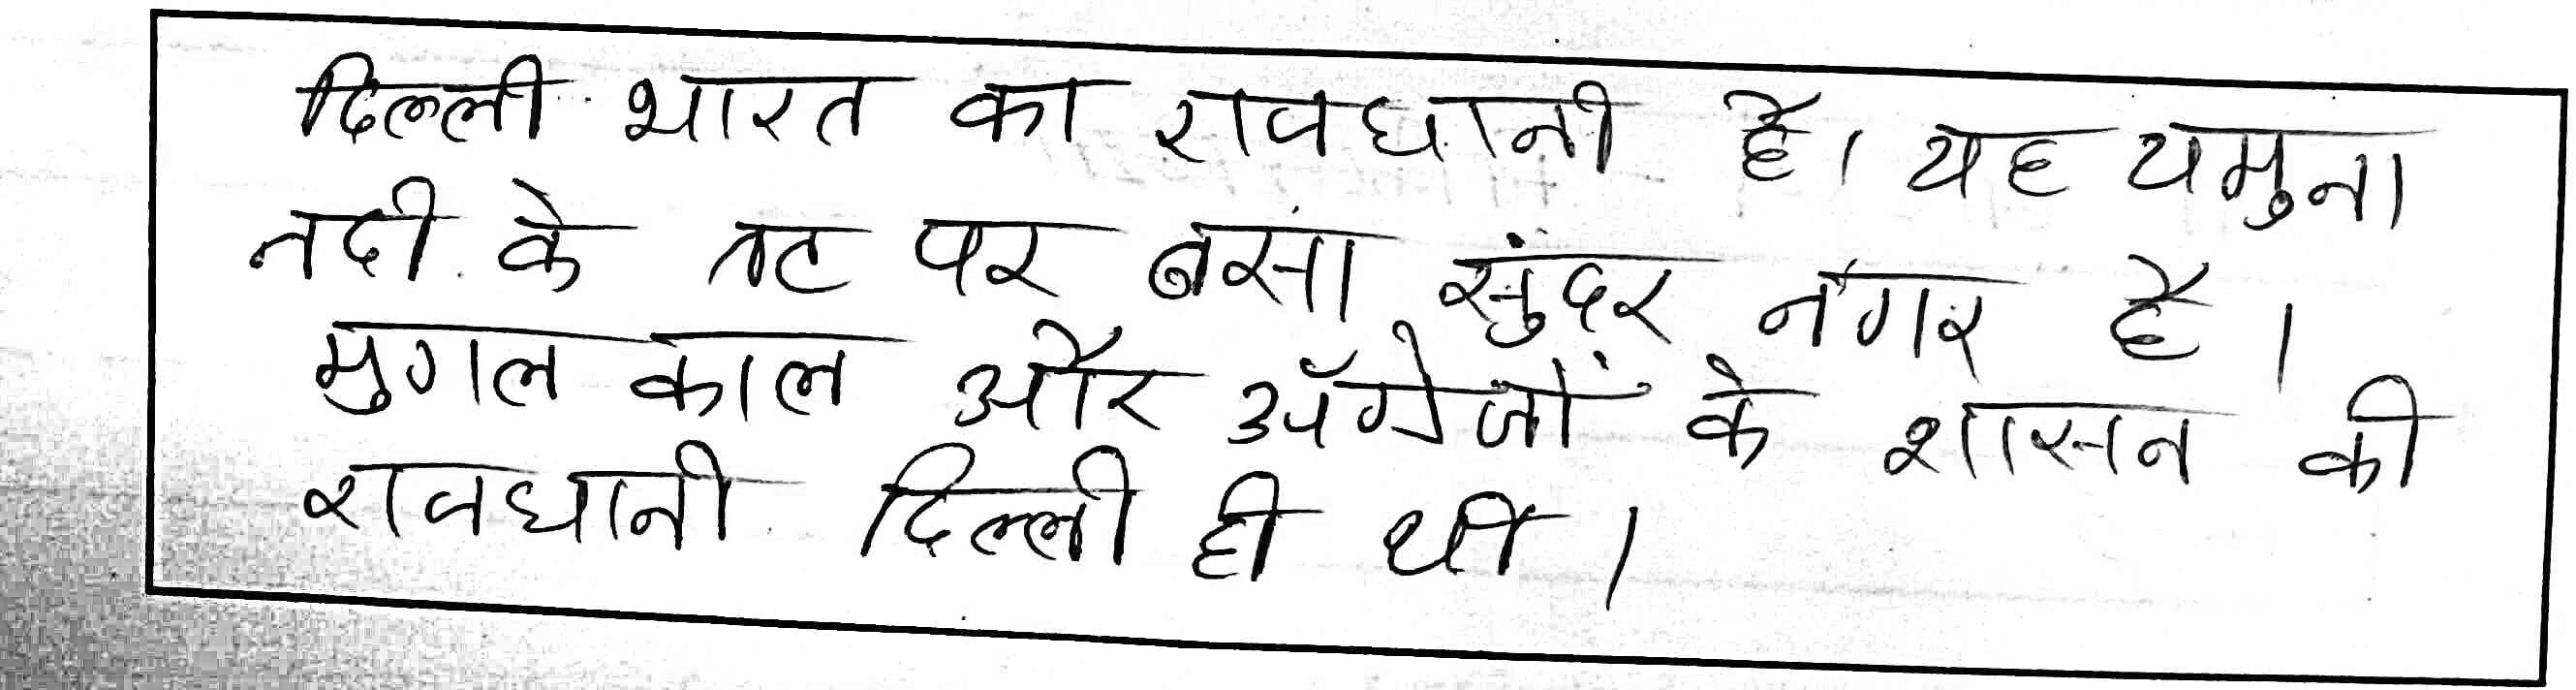 दिल्ली भारत का रावधानी है। यह यमुना
नदी के तट पर बसा सुंदर नगर है।
मुगल काल और अँग्रेजों के शासन की
रावधानी दिल्ली ही थी।